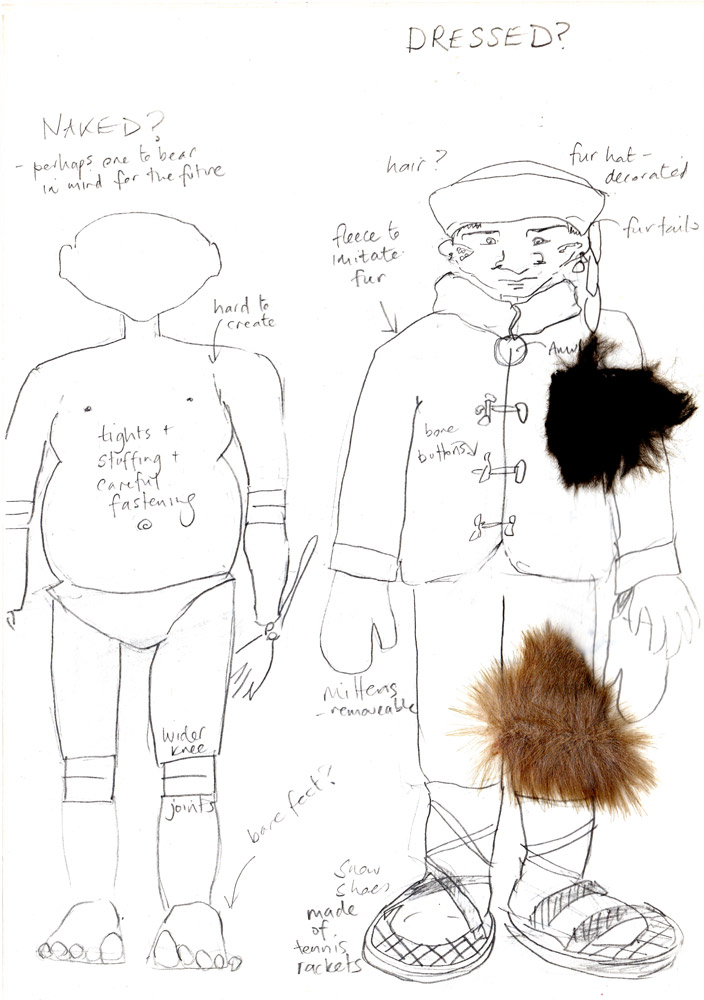 DRESSED?
NAKED?
- perhaps one to bear
in mind for the future
hair?
fur hat -
decorated
fur tails
fleece to
imitate
fur
hard to
create
tights +
stuffing +
careful
fastening
bone
buttons
mittens
- removeable
wider
knee
joints
bare feet?
snow
shoes
made
of
tennis
rackets